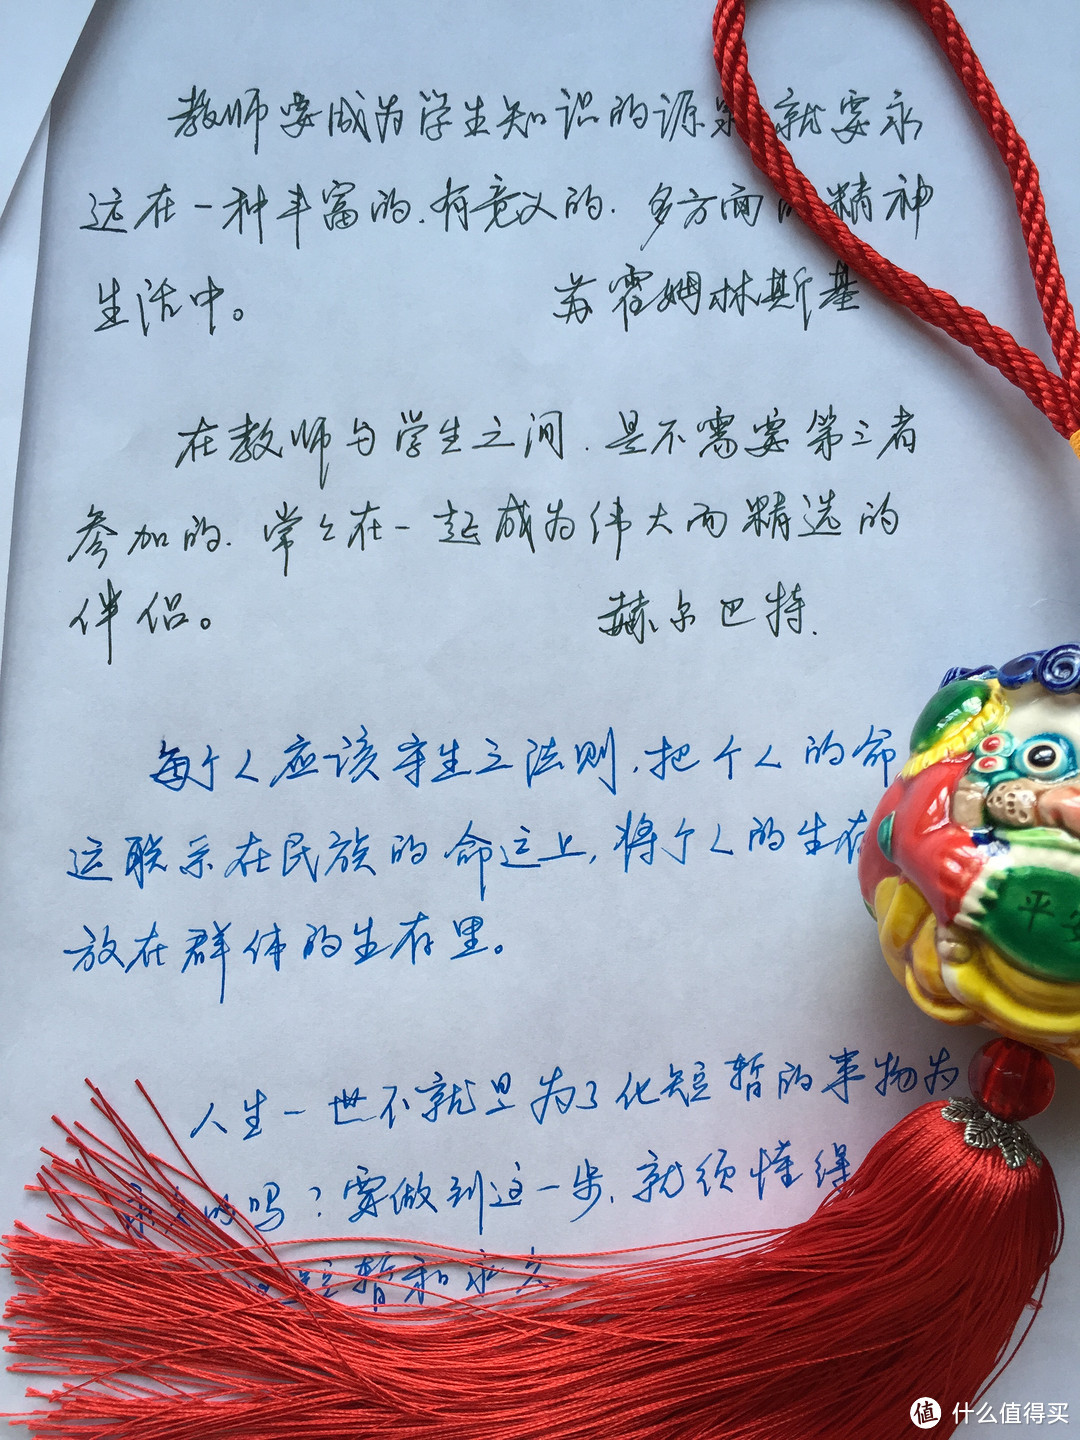 教师要成为学生知识的源泉 就要永
远在一种丰富的、有意义的、多方面的精神
生活中。
苏霍姆林斯基
在教师与学生之间、是不需要第三者
参加的、常々在一起成为伟大而精选的
伴侣。
赫尔巴特.
每个人应该守生之法则,把个人的命
运联系在民族的命运上,将个人的生存
放在群体的生存里。
平安
人生一世不就是为了化短暂的事物为
永久的吗?要做到这一步、就须懂得
短暂和永久
值 什么值得买